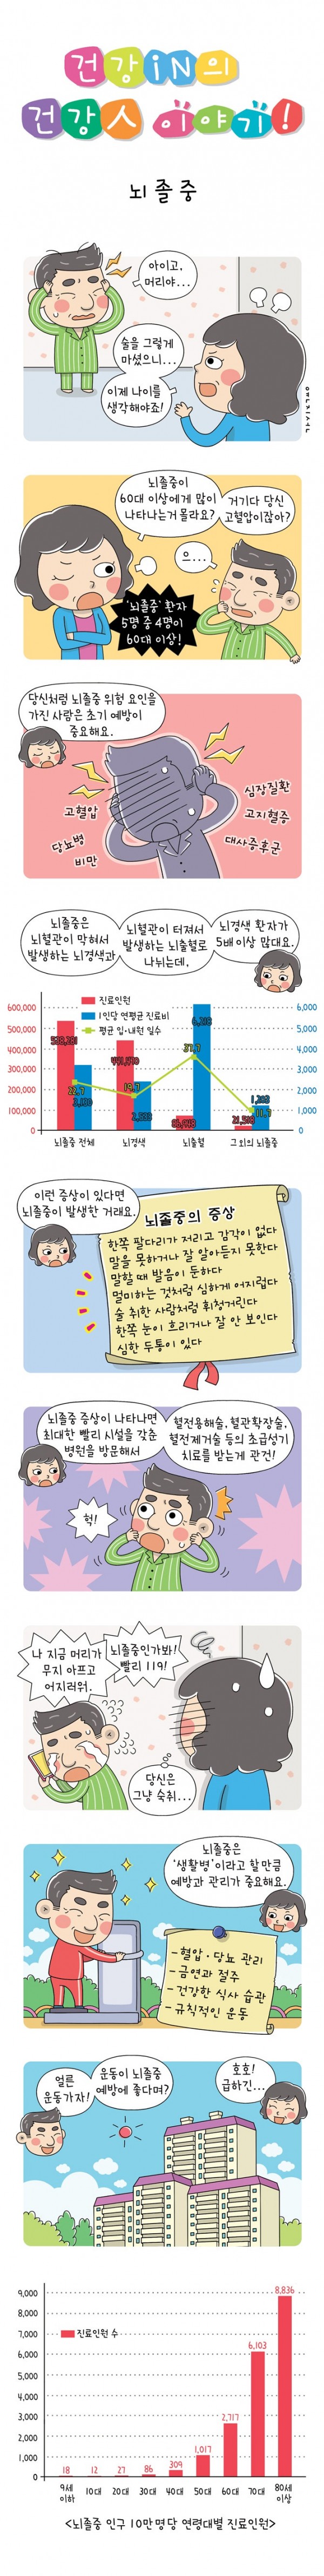 건강iN의
건강人 이야기!
뇌졸중
아이고,
머리야...
술을 그렇게
마셨으니...
이제 나이를
생각해야죠!
뇌졸중이
60대 이상에게 많이
나타나는거 몰라요?
거기다 당신
고혈압이잖아?
으...
'뇌졸중' 환자
5명 중 4명이
60대 이상!
당신처럼 뇌졸중 위험 요인을
가진 사람은 초기 예방이
중요해요.
고혈압
당뇨병
비만
심장질환
고지혈증
대사증후군
뇌졸중은
뇌혈관이 막혀서
발생하는 뇌경색과
뇌혈관이 터져서
발생하는 뇌출혈로
나뉘는데.
뇌경색 환자가
5배 이상 많대요.
진료인원
1인당 연평균 진료비
평균 입·내원 일수
600,000
500,000
400,000
300,000
200,000
100,000
0
6,000
5,000
4,000
3,000
2,000
1,000
0
22.7
19.7
37.7
11.7
뇌졸중 전체
뇌경색
뇌출혈
그 외의 뇌졸중
이런 증상이 있다면
뇌졸중이 발생한 거래요.
뇌졸중의 증상
한쪽 팔다리가 저리고 감각이 없다
말을 못하거나 잘 알아듣지 못한다
말할 때 발음이 둔하다
멀미하는 것처럼 심하게 어지럽다
술 취한 사람처럼 휘청거린다
한쪽 눈이 흐리거나 잘 안 보인다
심한 두통이 있다
뇌졸중 증상이 나타나면
최대한 빨리 시설을 갖춘
병원을 방문해서
혈전용해술, 혈관확장술,
혈전제거술 등의 초급성기
치료를 받는게 관건!
헉!
나 지금 머리가
무지 아프고
어지러워.
뇌졸중인가봐!
빨리 119!
당신은
그냥 숙취...
뇌졸중은
'생활병'이라고 할만큼
예방과 관리가 중요해요.
- 혈압·당뇨 관리
- 금연과 절주
- 건강한 식사 습관
- 규칙적인 운동
얼른
운동가자!
운동이 뇌졸중
예방에 좋다며?
호호!
급하긴...
9,000
8,000
7,000
6,000
5,000
4,000
3,000
2,000
1,000
0
진료인원 수
18
12
27
86
309
1,017
2,717
6,103
8,836
9세
이하
10대
20대
30대
40대
50대
60대
70대
80세
이상
<뇌졸중 인구 10만명당 연령대별 진료인원>